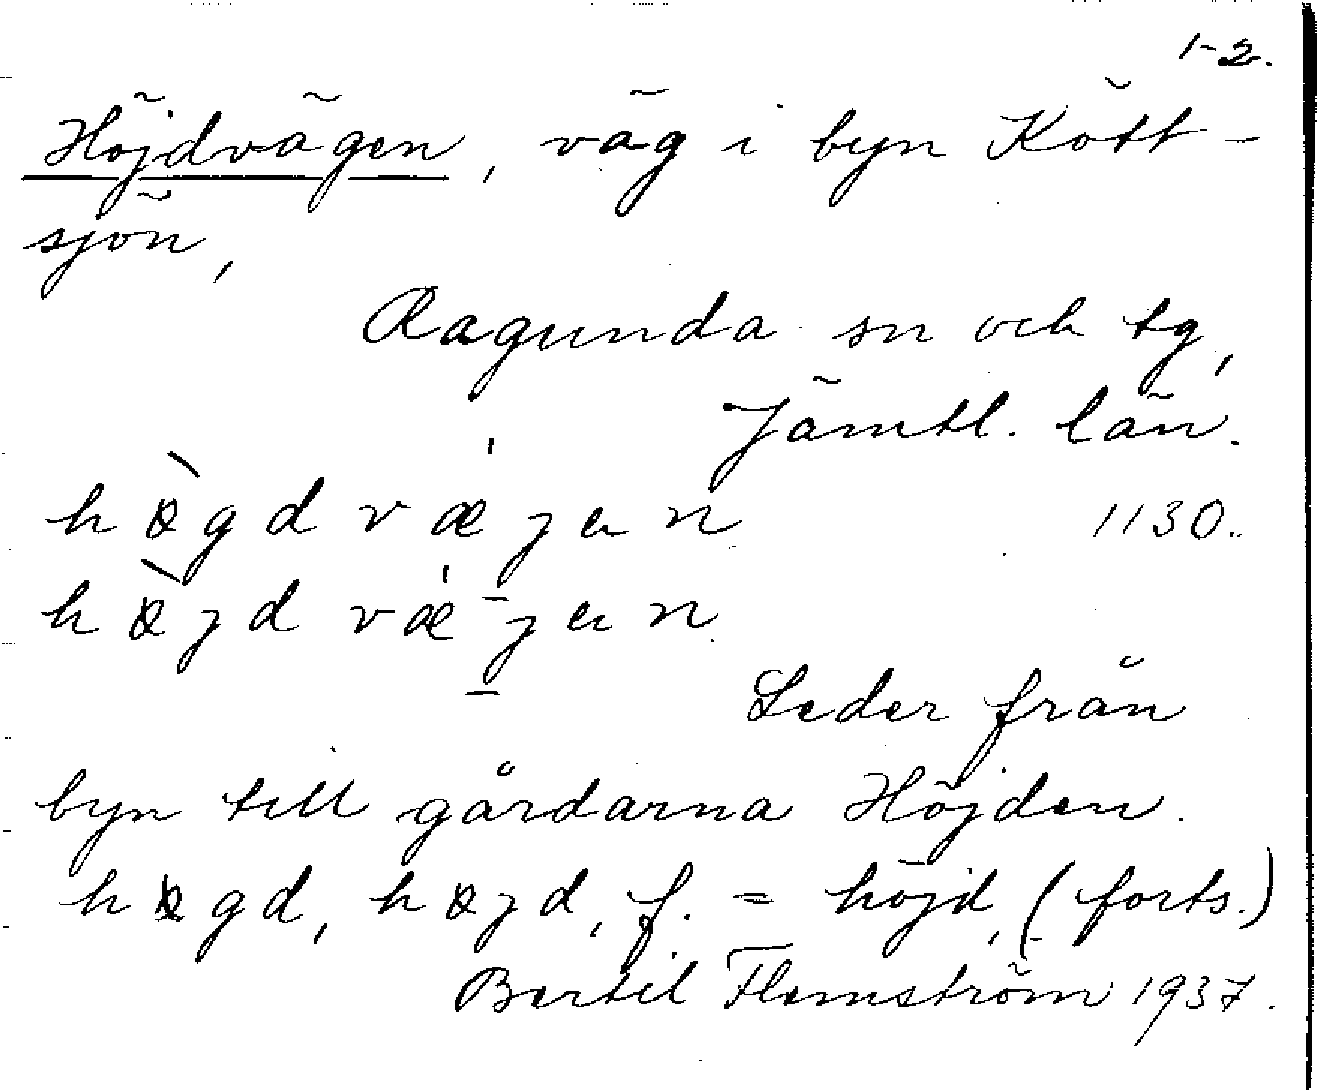 1-2.
Höjdvägen, väg i byn Kött-
sjön,
Ragunda sn och tg,
Jämtl. län.
hø̀gdvæ'jen 1130.
hø̀jdvæ'jen
Leder från
byn till gårdarna Höjden.
høgd, højd, f. = höjd, (forts.)
Bertil Flemström 1937.